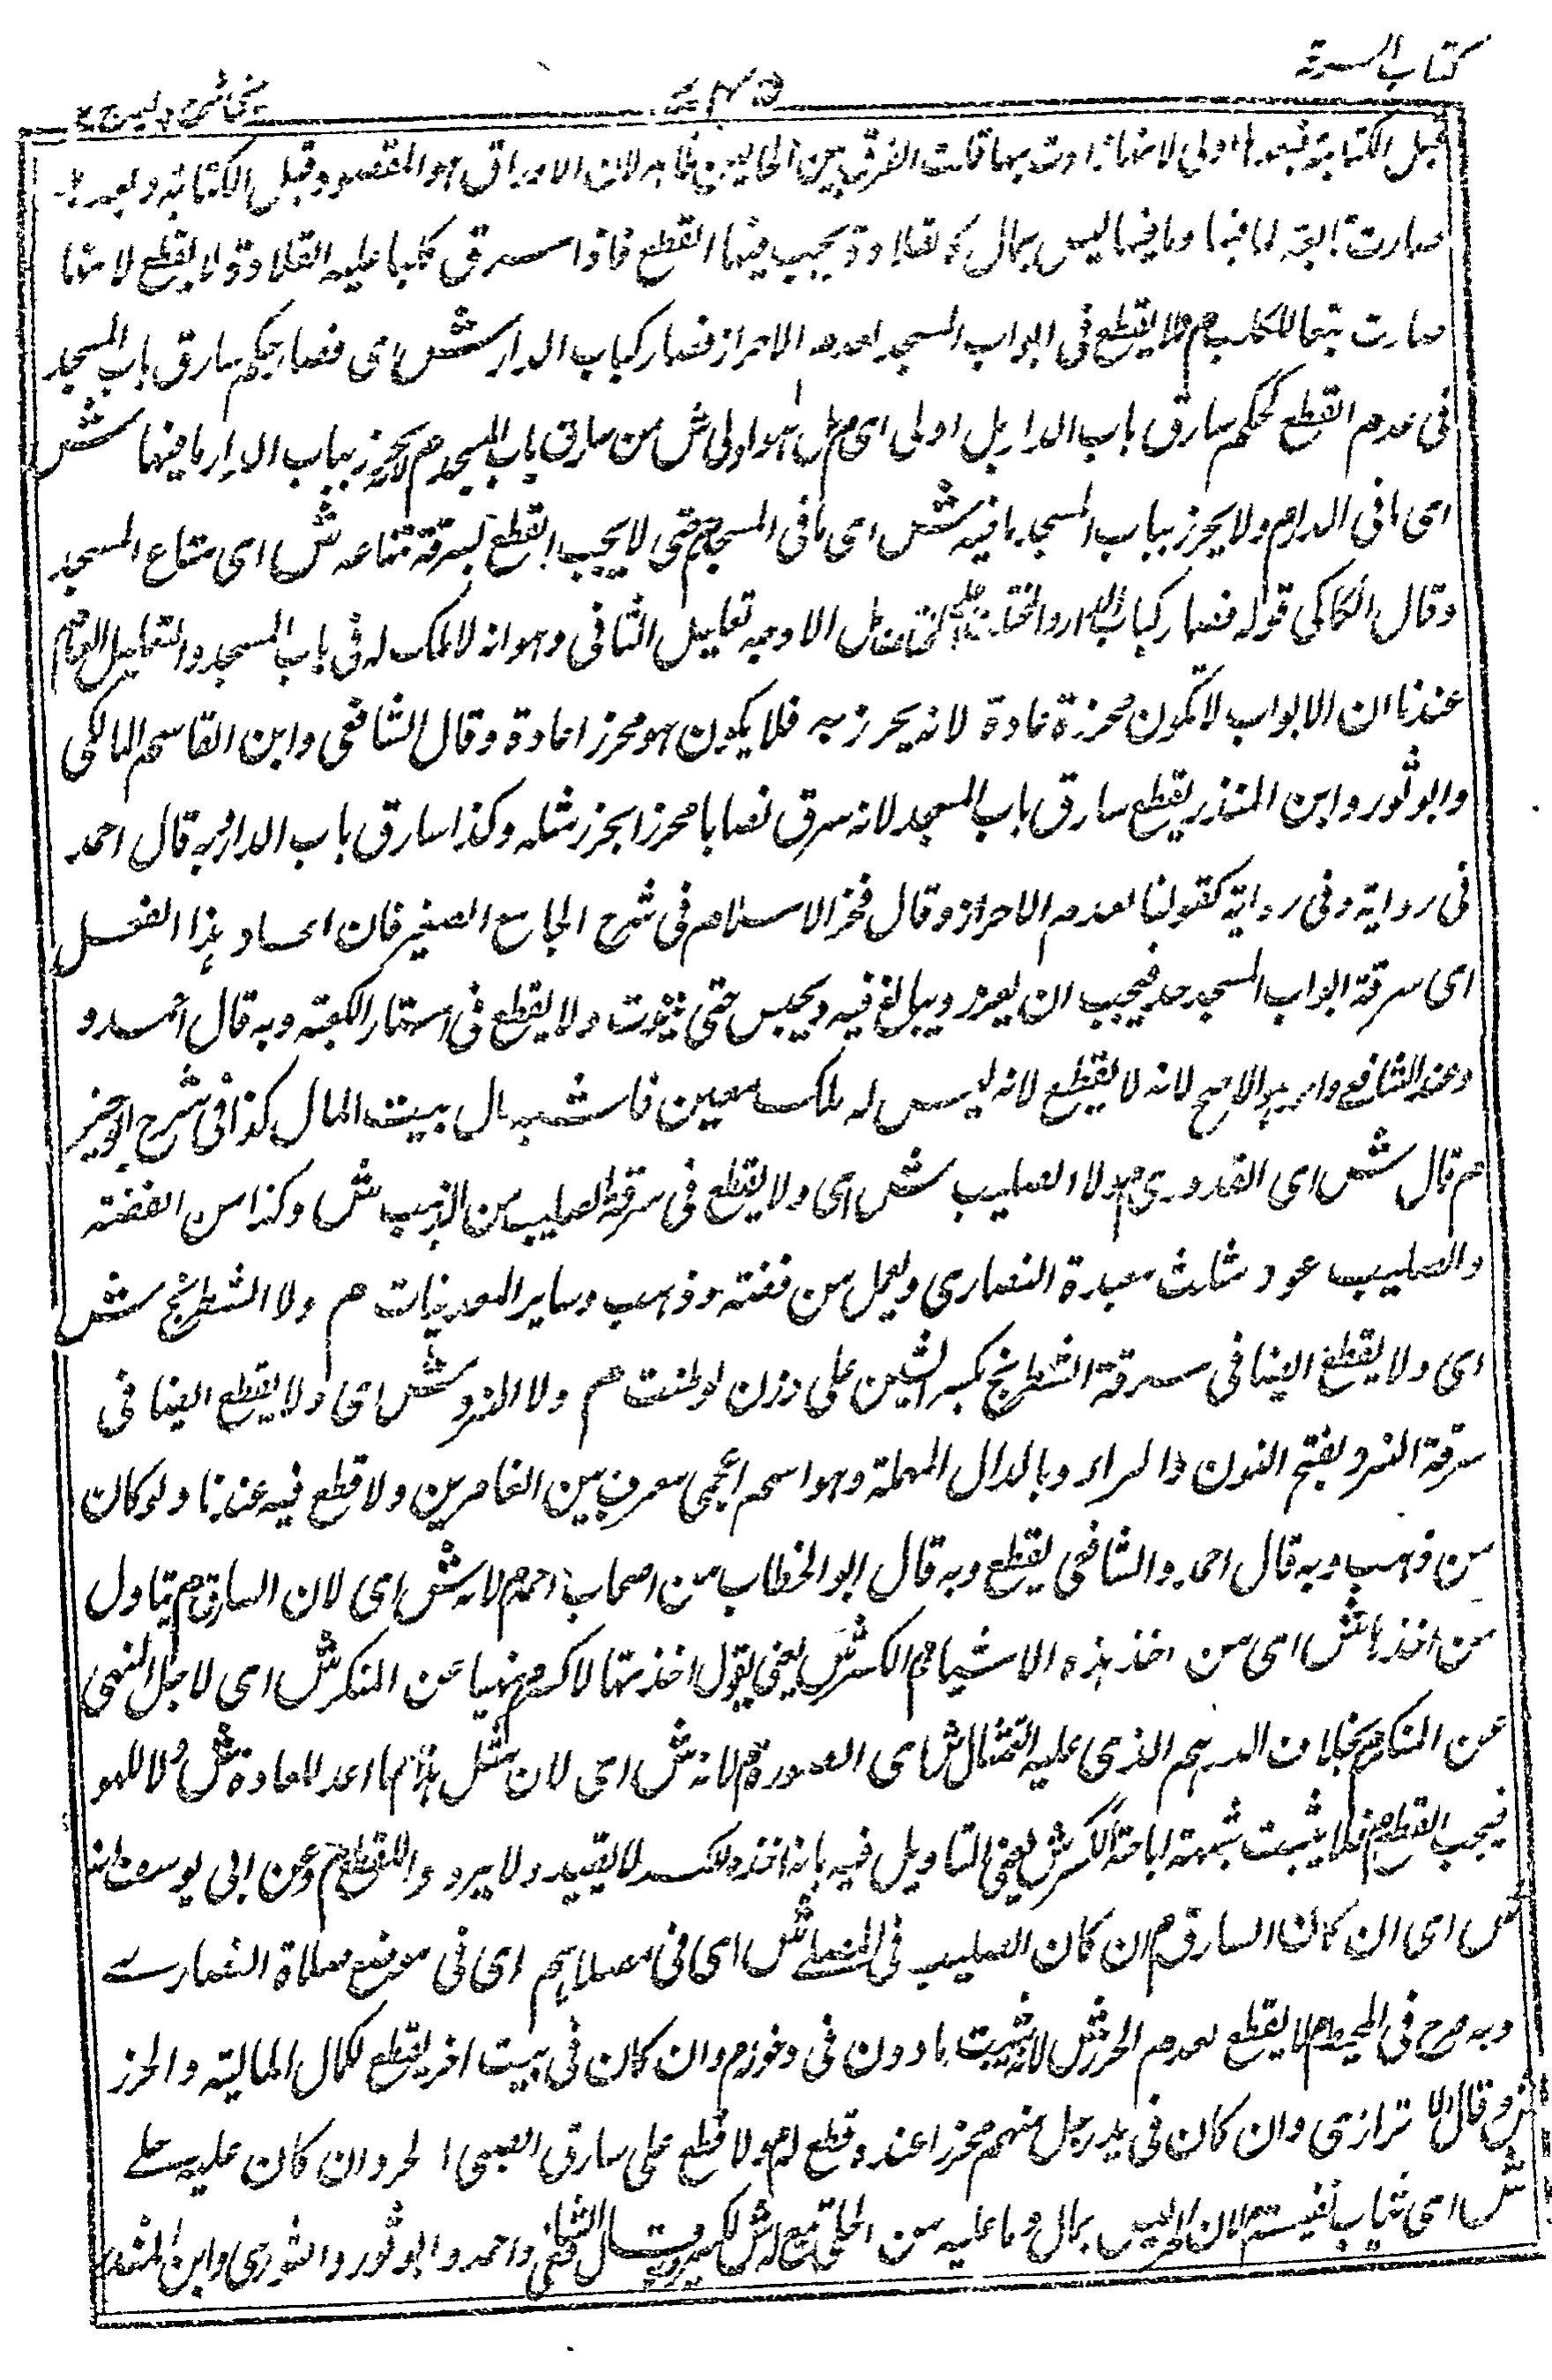 كتاب السرقة
قبل الكتابة فبعدها اولى لانها ازدادت بها قلت الفرق بين الحالين ظاهر لان الاوراق هو المقصود قبل الكتابة وبعدها
صارت تابعة لما فيها وما فيها ليس بمال كالقلادة يجب فيها القطع فاذا سرق كلبا عليه القلادة لا يقطع لانها
صارت تبعا للكلب م ولا يقطع فى ابواب المسجد لعدم الاحراز فصار كباب الدار ش اى فصار حكم سارق باب المسجد
فى عدم القطع كحكم سارق باب الدار بل اولى اى م بل هو اولى ش من سارق باب المسجد م لانه يحرز بباب الدار ما فيها ش
اى ما فى الدار م ولا يحرز بباب المسجد ما فيه ش اى ما فى المسجد م حتى لا يجب القطع بسرقة متاعه ش اى متاع المسجد
وقال الكاكى قوله فصار كباب الدار الاوجه تعليل الثانى وهو انه لا ملك له فى باب المسجد والتعليل العام
عندنا ان الابواب لا تكون محرزة عادة لانه يحرز به فلا يكون هو محرزا عادة وقال الشافعى وابن القاسم المالكى
وابو ثور وابن المنذر يقطع سارق باب المسجد لانه سرق نصابا محرزا بحرز مثله وكذا سارق باب الدار وبه قال احمد
فى رواية وفى رواية كقولنا لعدم الاحراز وقال فخر الاسلام فى شرح الجامع الصغير فان اعتاد هذا الفعل
اى سرقة ابواب المسجد فيجب ان يعزر ويبالغ فيه ويحبس حتى يتوب ولا يقطع فى استار الكعبة وبه قال احمد و
وعن الشافعى وهو الاصح لانه لا يقطع لانه ليس له ملك معين فاشبه مال بيت المال كذا فى شرح الوجيز
م قال ش اى القدورى م ولا الصليب ش اى ولا يقطع فى سرقة الصليب من الذهب ش وكذا من الفضة
والصليب عود مثلث معبدة النصارى ويعمل من فضة وذهب وساير المعدنيات م ولا الشطرنج ش
اى ولا يقطع ايضا فى سرقة الشطرنج بكسر الشين على وزن قرطعب م ولا النرد ش اى ولا يقطع ايضا فى
سرقة النرد بفتح النون والراء وبالدال المهملة وهو اسم اعجمى معرف بين القامرين ولا قطع فيه عندنا ولو كان
من ذهب وبه قال احمد والشافعى يقطع وبه قال ابو الخطاب من اصحاب احمد م لانه ش اى لان السارق م يتاول
من اخذها ش اى من اخذ هذه الاشياء م الكسر ش يعنى يقول اخذتها لاكسر م نهيا عن المنكر ش اى لاجل النهى
عن المنكر م بخلاف الدرهم الذى عليه التمثال ش اى الصورة م لانه ش اى لان مثل هذا م ما اعد للعبادة ش ولا للهو
فيجب القطع م فلا يثبت شبهة اباحة الكسر ش يعنى التاويل فيه بانه اخذه للكسر لا يفيد ولا يرد القطع م وعن ابى يوسف انه
ش اى ان كان السارق م ان كان الصليب فى المصلى ش اى فى مصلاهم اى فى موضع صلاة النصارى
وبه صرح فى المحيط م لا يقطع لعدم الحرز ش لانه بيت ماذون فى دخوله م وان كان فى بيت اخر يقطع لكمال المالية والحرز
ش وقال الاترازى وان كان فى يد رجل منهم محرزا عنده قطع له م ولا قطع على سارق الصبى الحر وان كان عليه حلى
ش اى ثياب نفيسة م لان الحر ليس بمال وما عليه من الحلى تبع له ش وقال الشافعى واحمد وابو ثور والثورى وابن المنذر